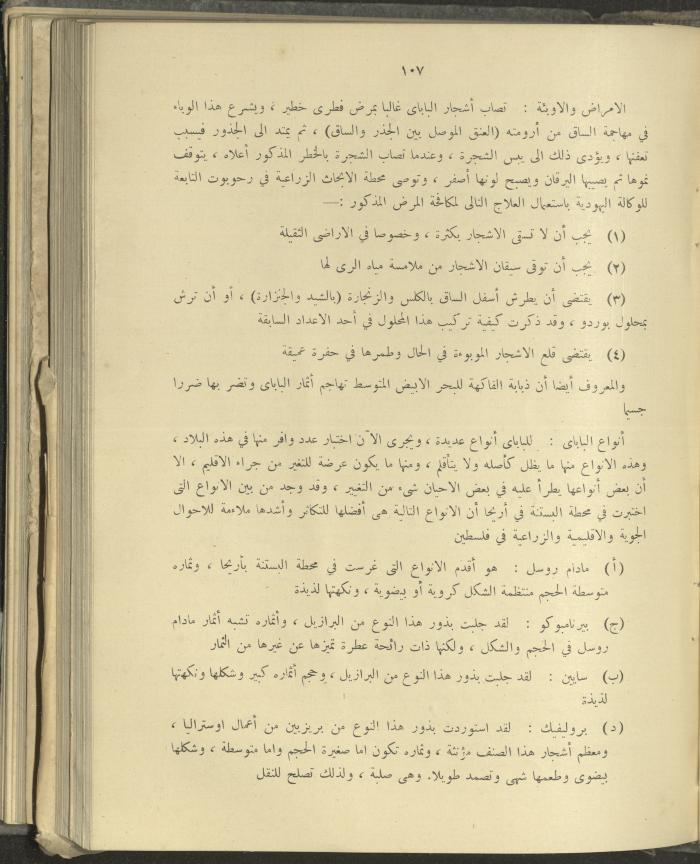 ١٠٧
الامراض والاوبئة : تصاب أشجار الباباى غالبا بمرض فطرى خطير ، ويشرع هذا الوباء
في مهاجمة الساق من أرومته (العنق الموصل بين الجذر والساق) ، ثم يمتد الى الجذور فيسبب
تعفنها ، ويؤدى ذلك الى يبس الشجرة ، وعندما تصاب الشجرة بالخطر المذكور أعلاه ، يتوقف
نموها ثم يصيبها اليرقان ويصبح لونها أصفر ، وتوصى محطة الابحاث الزراعية في رحوبوت التابعة
للوكالة اليهودية باستعمال العلاج التالى لمكافحة المرض المذكور :—
(١) يجب أن لا تسقى الاشجار بكثرة ، وخصوصا في الاراضى الثقيلة
(٢) يجب أن توقى سيقان الاشجار من ملامسة مياه الرى لها
(٣) يقتضى أن يطرش أسفل الساق بالكلس والزنجارة (بالشيد والجنزارة) ، أو أن ترش
بمحلول بوردو ، وقد ذكرت كيفية تركيب هذا المحلول في أحد الاعداد السابقة
(٤) يقتضى قلع الاشجار الموبوءة في الحال وطمرها في حفرة عميقة
والمعروف أيضا أن ذبابة الفاكهة للبحر الابيض المتوسط تهاجم أثمار الباباى وتضر بها ضررا
جسيما
أنواع الباباى : للباباى أنواع عديدة ، ويجرى الآن اختبار عدد وافر منها في هذه البلاد ،
وهذه الانواع منها ما يظل كأصله ولا يتأقلم ، ومنها ما يكون عرضة للتغير من جراء الاقليم ، الا
أن بعض أنواعها يطرأ عليه في بعض الاحيان شىء من التغيير ، وقد وجد من بين الانواع التى
اختبرت في محطة البستنة في أريحا أن الانواع التالية هى أفضلها للتكاثر وأشدها ملاءمة للاحوال
الجوية والاقليمية والزراعية في فلسطين
(أ) مادام روسل : هو أقدم الانواع التى غرست في محطة البستنة بأريحا ، وثماره
متوسطة الحجم منتظمة الشكل كروية أو بيضوية ، ونكهتها لذيذة
(ج) بيرنامبوكو : لقد جلبت بذور هذا النوع من البرازيل ، وأثماره تشبه أثمار مادام
روسل في الحجم والشكل ، ولكنها ذات رائحة عطرة تميزها عن غيرها من الثمار
(ب) سايبن : لقد جلبت بذور هذا النوع من البرازيل ، وحجم أثماره كبير وشكلها ونكهتها
لذيذة
(د) بروليفيك : لقد استوردت بذور هذا النوع من بريزبين من أعمال اوستراليا ،
ومعظم أشجار هذا الصنف مؤنثة ، وثماره تكون اما صغيرة الحجم واما متوسطة ، وشكلها
بيضوى وطعمها شهى وتصمد طويلا. وهى صلبة ، ولذلك تصلح للنقل